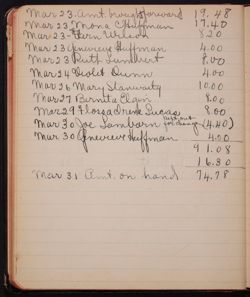 Mar 23. Amt. brought forward 19.48
Mar 23. Mona C. Huffman 17.40
Mar 23 - Fern Wilson 8.20
Mar 23 Genevieve Huffman 4.00
Mar 23 Ruth 8.00
Mar 24 Violet Dunn 4.00
Mar 26 Mary Stanwaity 10.00
Mar 27 Bernita Elgin 8.00
Mar 29 Flossa Irene Lucas 8.00
Mar 30 Joe Lambarn for change (4.40)
Mar 30 Genevieve Huffman 4.00
91.08
16.30
Mar 31 Amt. on hand 74.78